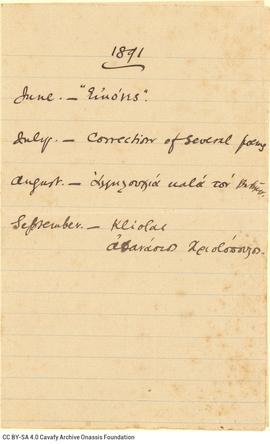 1891
June. — "Εικόνες".
July. — Correction of several poems
August. — Αλληλουχία κατά τον
September. — Κλισίαι
Αθανάσιος Χριστόπουλος.
CC BY-SA 4.0 Cavafy Archive Onassis Foundation